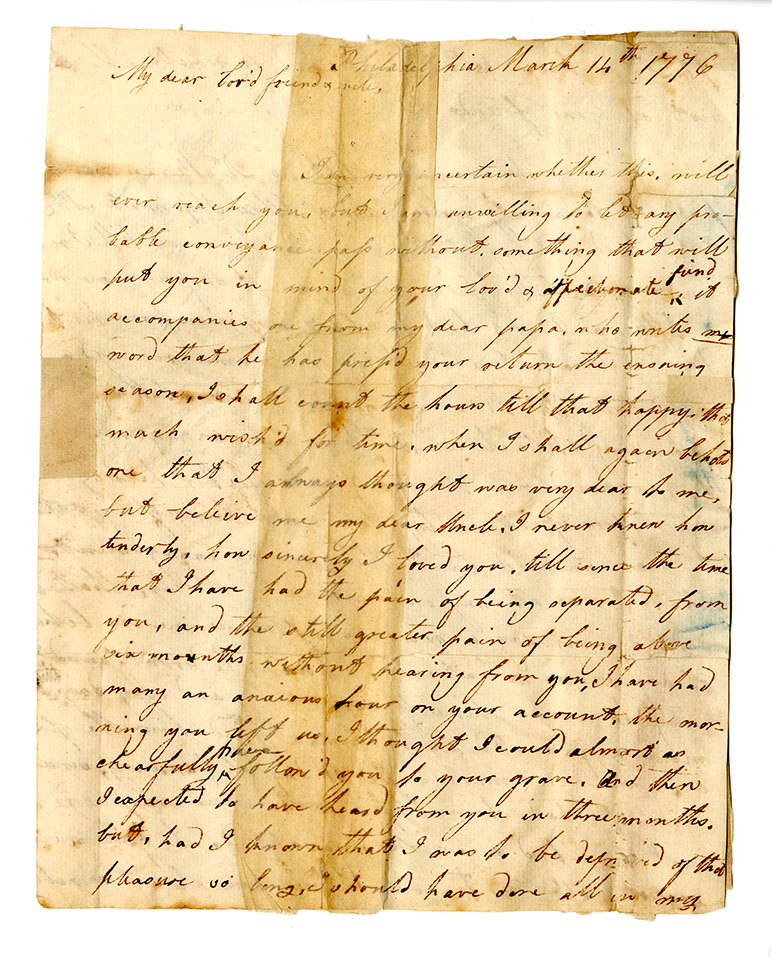 Philadelphia March 14th 1776
My dear lov'd friend & uncle,
I am very uncertain whether this, will
ever reach you, but I am unwilling to let any pro-
bable conveyance pass without, something that will
put you in mind of your lov'd & affectionate friend, it
accompanies one from my dear papa, who writes me
word that he has press'd your return the ensuing
season, I shall count the hours till that happy, that
much wish'd for time, when I shall again behold
one that I always thought was very dear to me,
but beleive me my dear Uncle, I never knew how
tenderly, how sincerely I loved you, till since the time
that I have had the pain of being separated, from
you, and the still greater pain of being above
six mounths without hearing from you, I have had
many an anxious hour on your account, the mor-
ning you left us, I thought I could almost as
chearfully have follow'd you to your grave, and then
I expected to have heard from you in three months,
but, had I known that I was to be depriv'd of that
pleasure so long, I should have done all in my